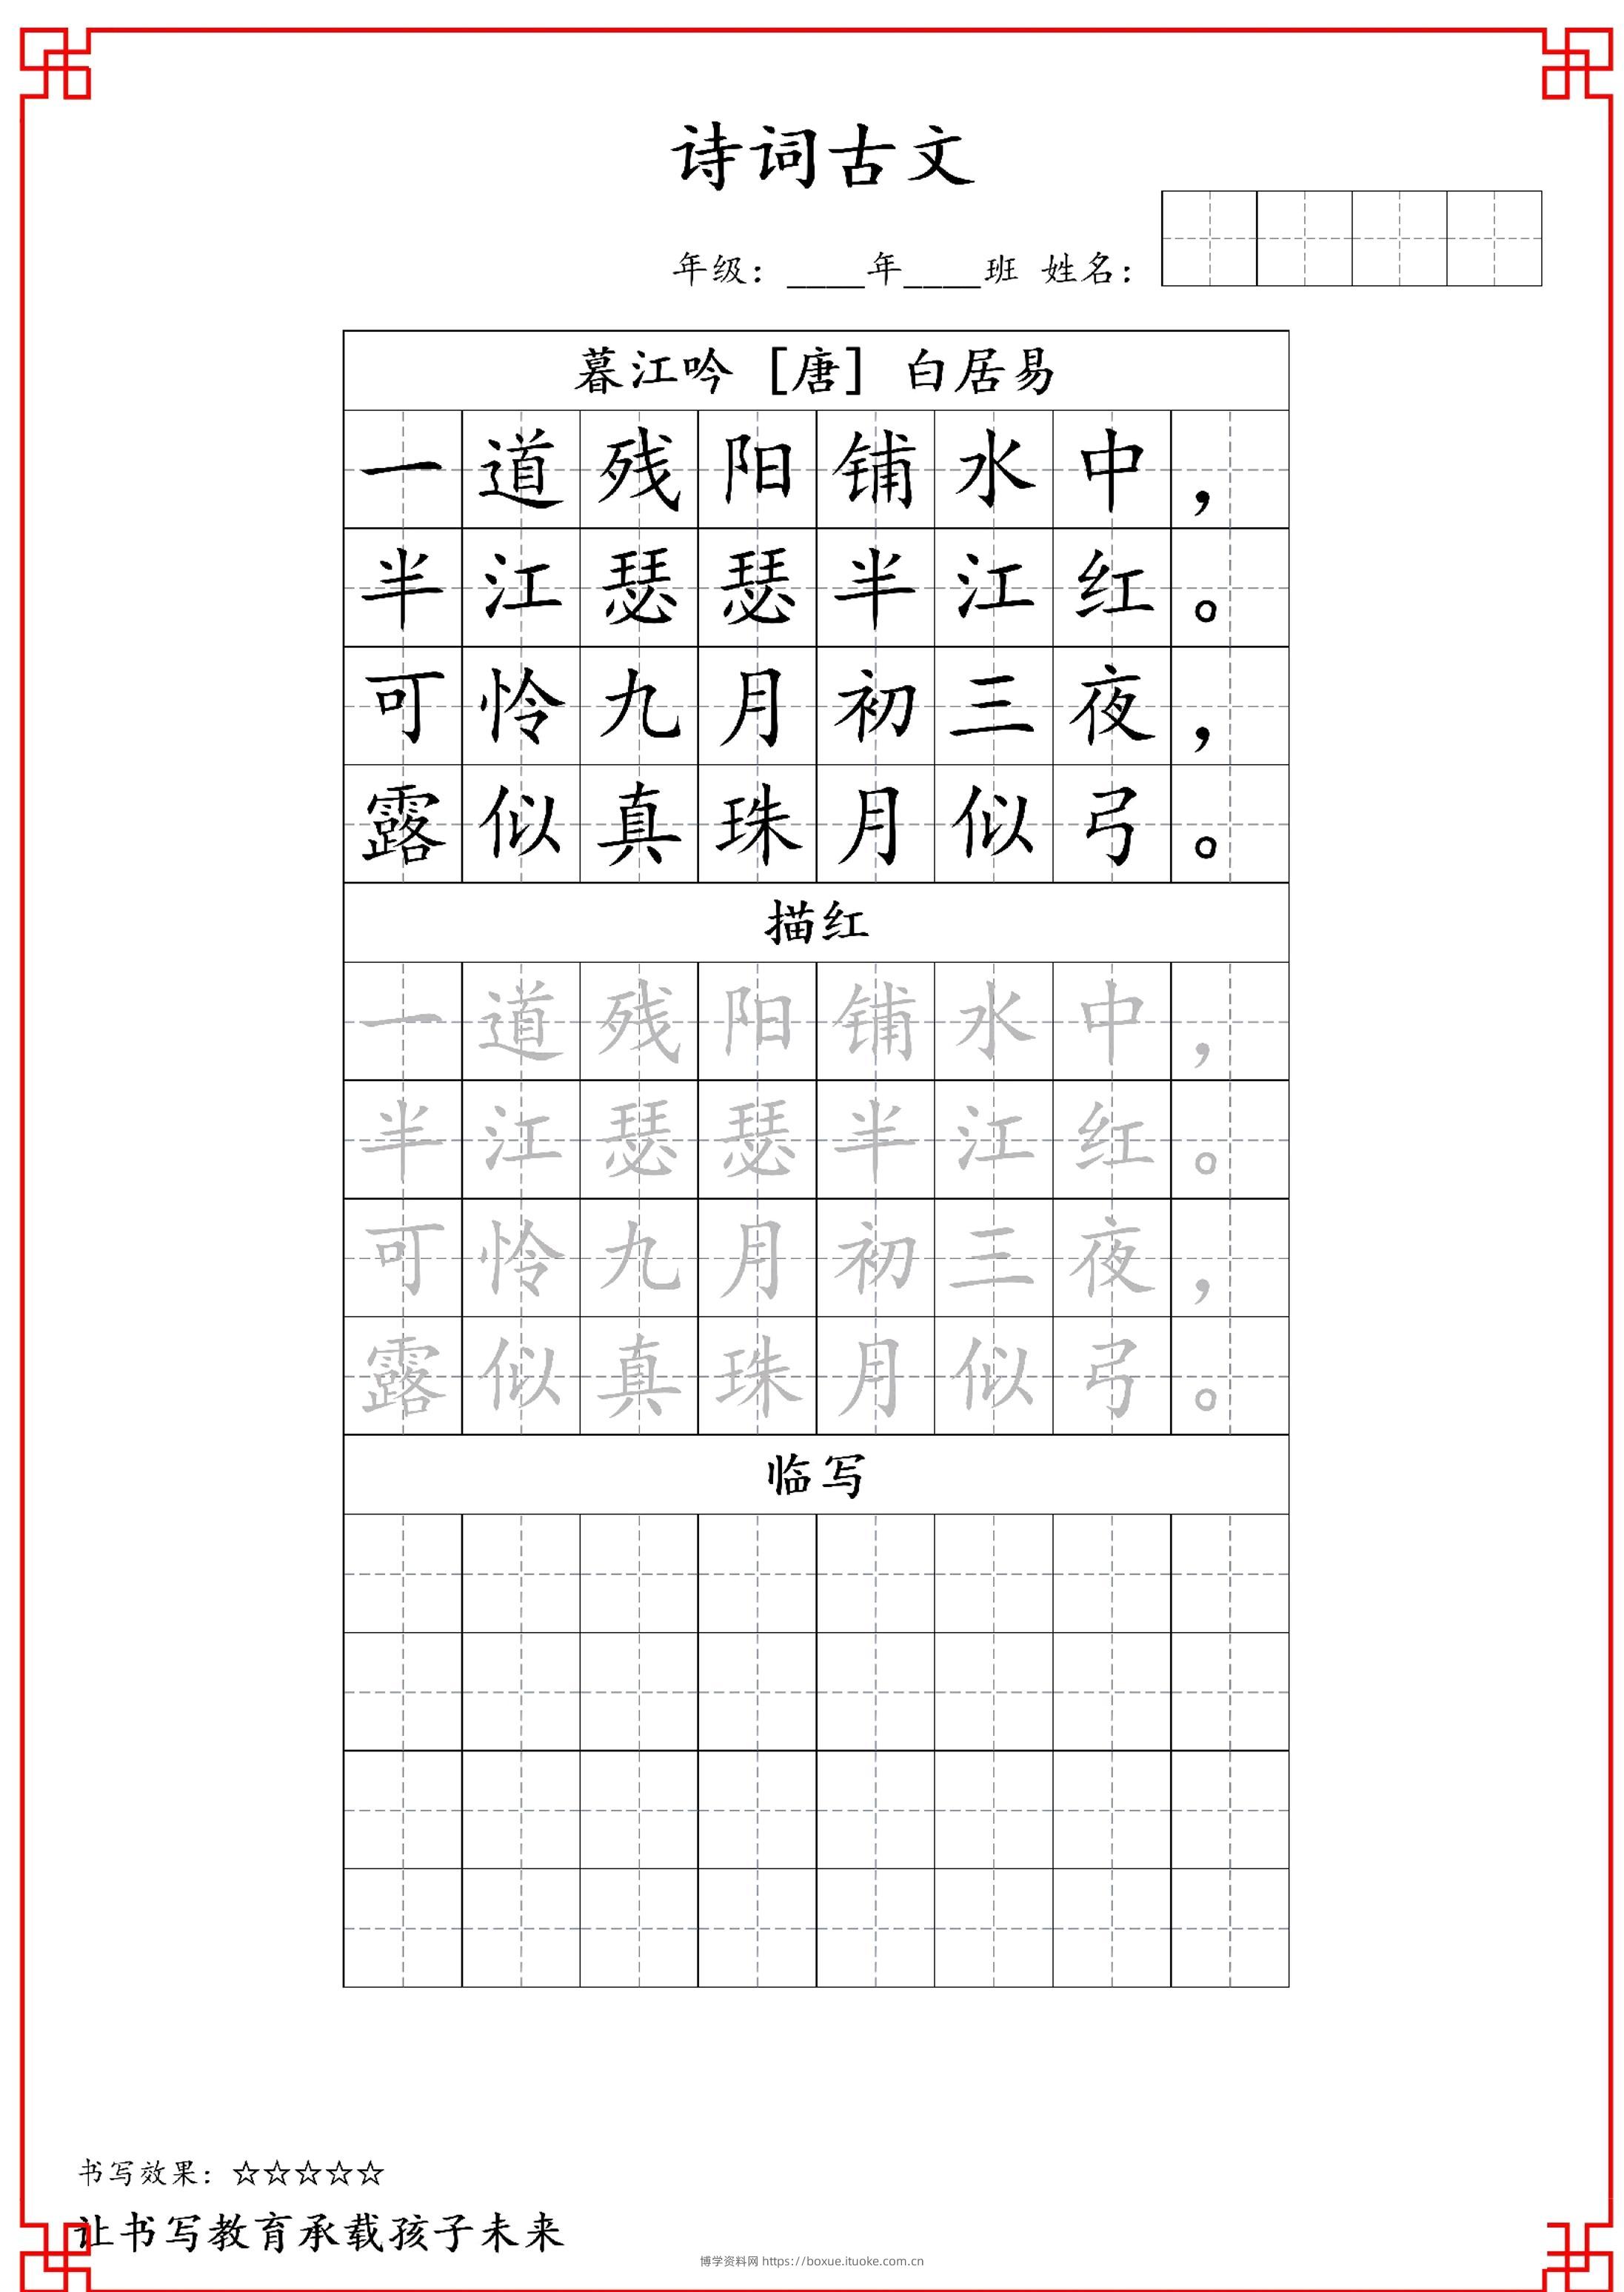 诗词古文
年级：____年____班 姓名：
暮江吟 [唐] 白居易
一道残阳铺水中，
半江瑟瑟半江红。
可怜九月初三夜，
露似真珠月似弓。
描红
一道残阳铺水中，
半江瑟瑟半江红。
可怜九月初三夜，
露似真珠月似弓。
临写
书写效果：☆☆☆☆☆
让书写教育承载孩子未来
博学资料网 https://boxue.ituoke.com.cn